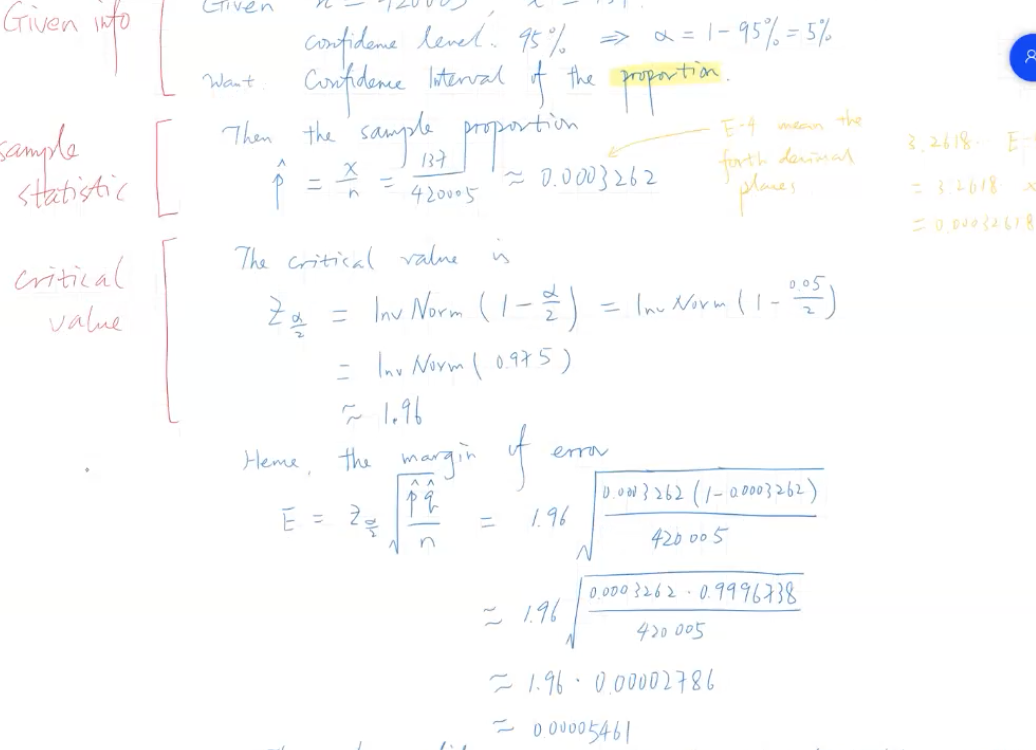 Given info
Given n = 420005, x = 137
Confidence level. 95% ⇒ α = 1 - 95% = 5%
Want. Confidence Interval of the proportion.
sample
statistic
Then the sample proportion
p̂ = x/n = 137/420005 ≈ 0.0003262
E-4 mean the
forth decimal
places
3.2618 E
= 3.2618 x
= 0.00032618
critical
value
The critical value is
Z_{α/2} = InvNorm (1 - α/2) = InvNorm (1 - 0.05/2)
= InvNorm (0.975)
≈ 1.96
Hence, the margin of error
E = Z_{α/2} √(p̂q̂/n) = 1.96 √(0.0003262 (1-0.0003262)/420005)
≈ 1.96 √(0.0003262 · 0.9996738/420005)
≈ 1.96 · 0.00002786
≈ 0.00005461